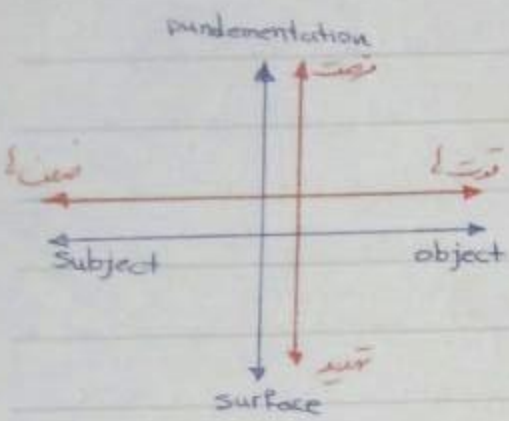 pundementation
فرصت
ضعف ها
قوت ها
Subject
object
تهدید
surface